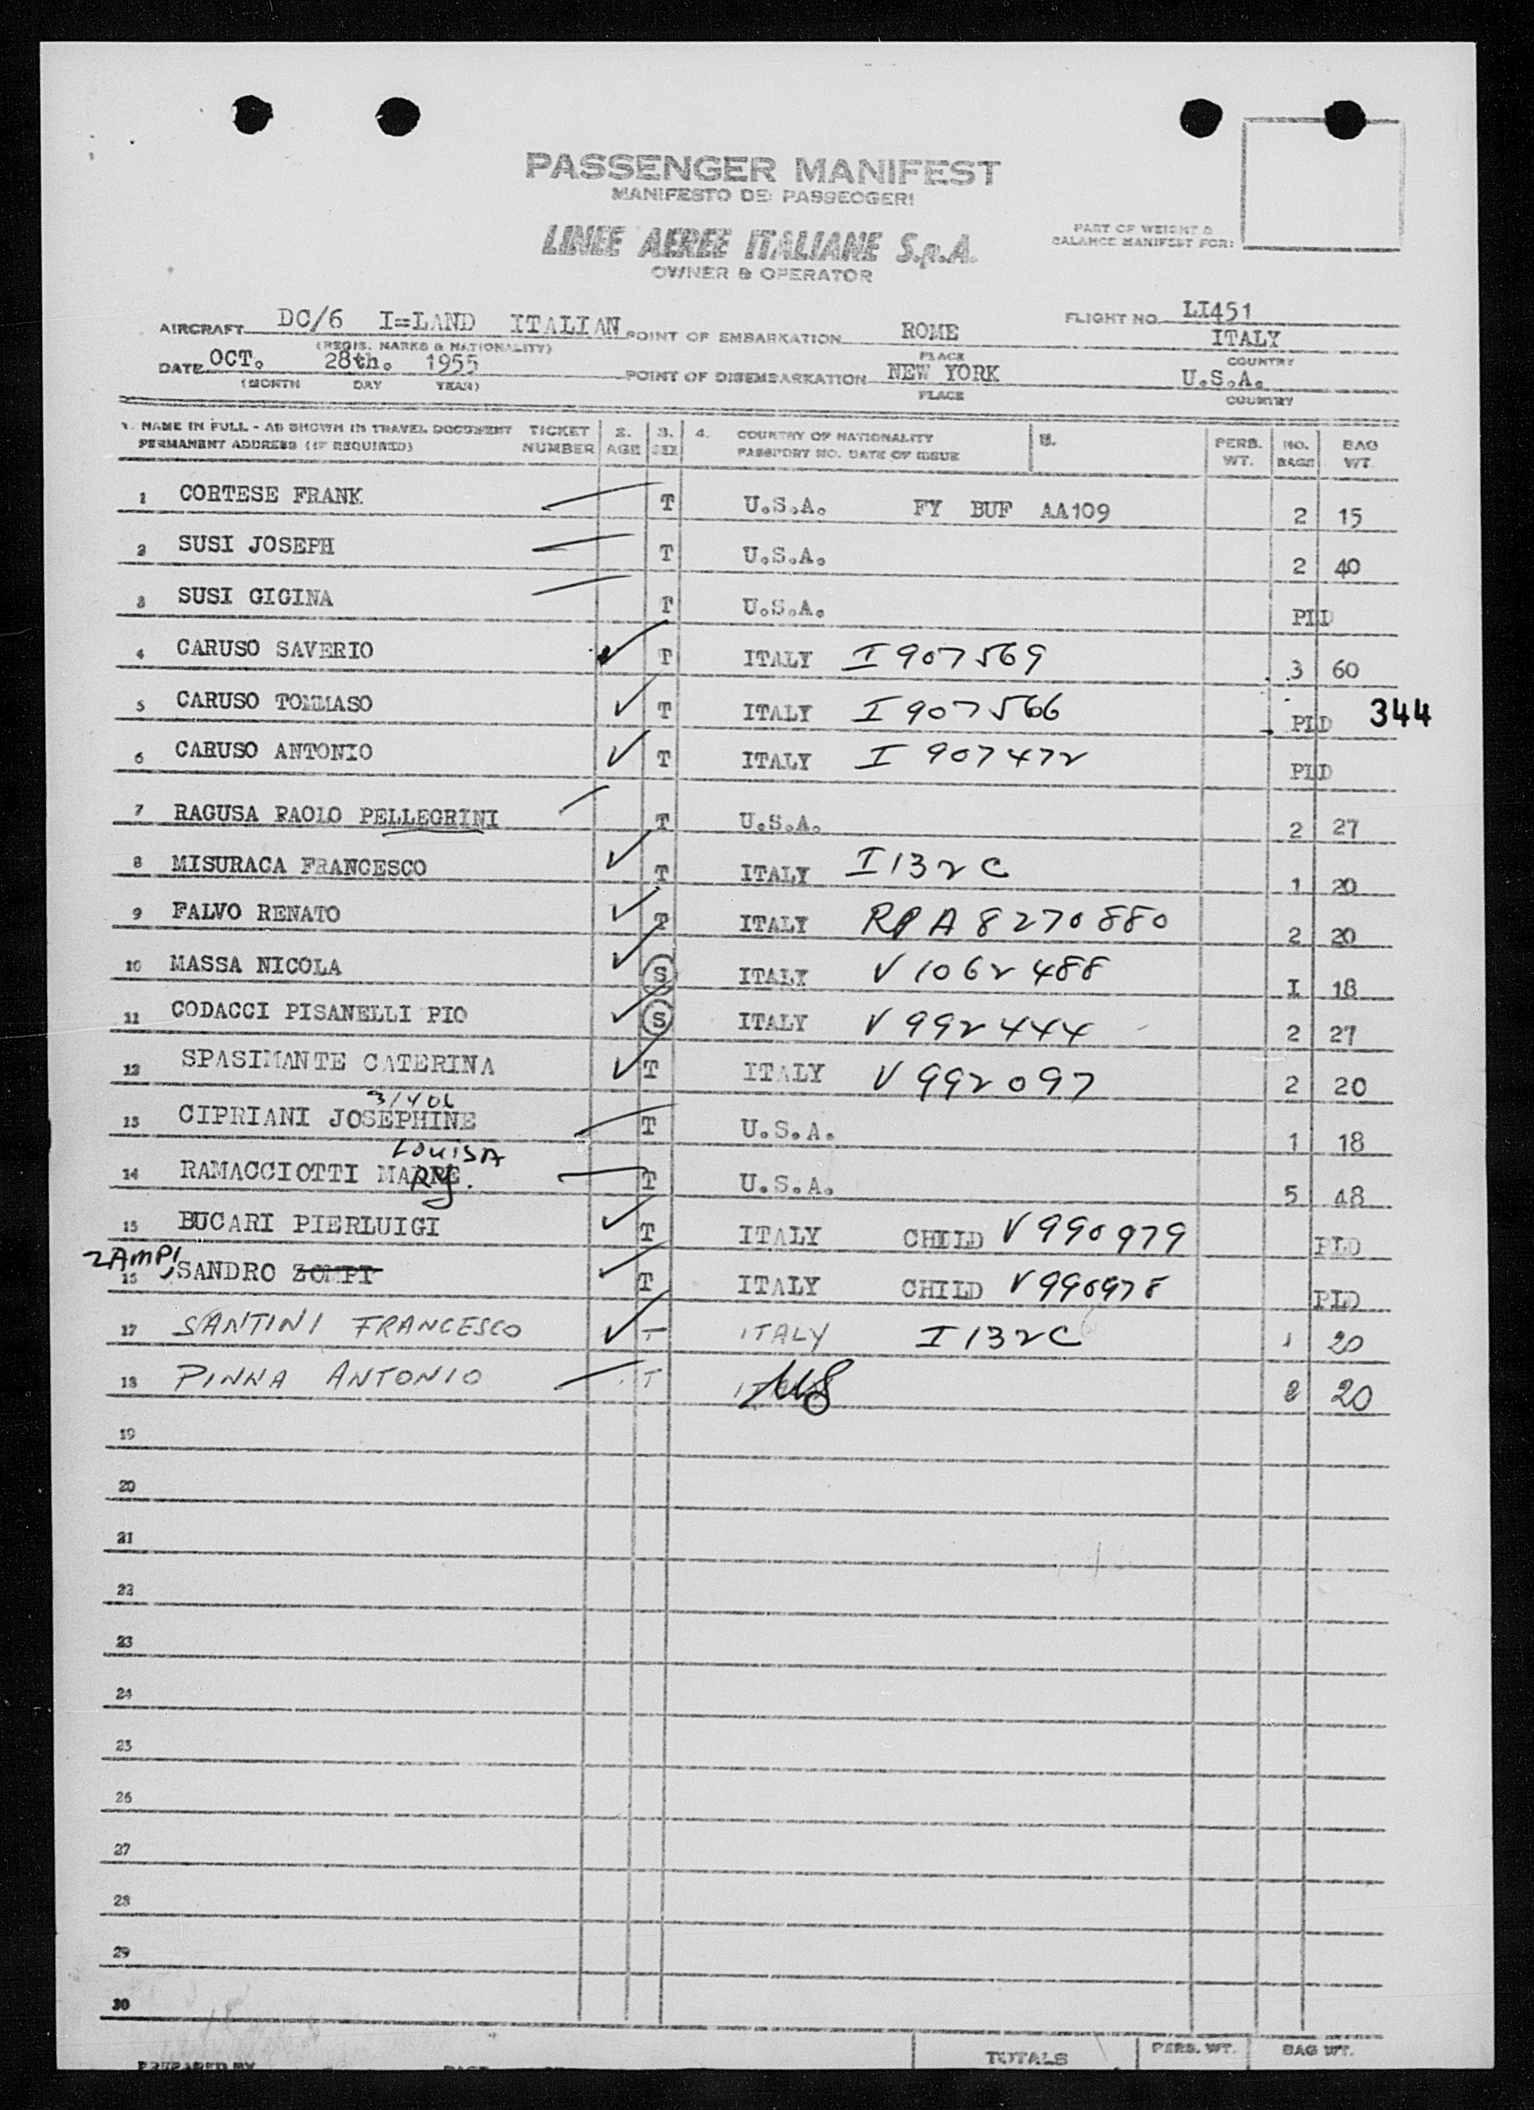 PASSENGER MANIFEST
MANIFESTO DEI PASSEGGERI
LINEE AEREE ITALIANE S.p.A.
OWNER & OPERATOR
PART OF WEIGHT &
BALANCE MANIFEST FOR:
AIRCRAFT DC/6 I=LAND ITALIAN POINT OF EMBARKATION ROME FLIGHT NO. LI451
ITALY
(REGIS. MARKS & NATIONALITY) PLACE COUNTRY
DATE OCT. 28th. 1955 POINT OF DISEMBARKATION NEW YORK U.S.A.
(MONTH DAY YEAR) PLACE COUNTRY
1. NAME IN FULL - AS SHOWN IN TRAVEL DOCUMENT TICKET 2. 3. 4. COUNTRY OF NATIONALITY 5. PERS. NO. BAG
PERMANENT ADDRESS (IF REQUIRED) NUMBER AGE SEX PASSPORT NO. DATE OF ISSUE WT. BAGS WT.
1 CORTESE FRANK T U.S.A. FY BUF AA109 2 15
2 SUSI JOSEPH T U.S.A. 2 40
3 SUSI GIGINA T U.S.A. PLD
4 CARUSO SAVERIO T ITALY I 907569 3 60
5 CARUSO TOMMASO T ITALY I 907566 PLD 344
6 CARUSO ANTONIO T ITALY I 907472 PLD
7 RAGUSA PAOLO PELLEGRINI T U.S.A. 2 27
8 MISURACA FRANCESCO T ITALY I 132 C 1 20
9 FALVO RENATO T ITALY RP A 8270880 2 20
10 MASSA NICOLA S ITALY V 1062488 I 18
11 CODACCI PISANELLI PIO S ITALY V 992444 2 27
12 SPASIMANTE CATERINA T ITALY V 992097 2 20
3/406
13 CIPRIANI JOSEPHINE T U.S.A. 1 18
LOUISA
14 RAMACCIOTTI MARY. T U.S.A. 5 48
15 BUCARI PIERLUIGI T ITALY CHILD V990979 PLD
ZAMPI,
16 SANDRO ZOMPI T ITALY CHILD V990978 PLD
17 SANTINI FRANCESCO T ITALY I 132C 1 20
18 PINNA ANTONIO T US 2 20
19
20
21
22
23
24
25
26
27
28
29
30
PREPARED BY PAGE OF TOTALS PERS. WT. BAG WT.